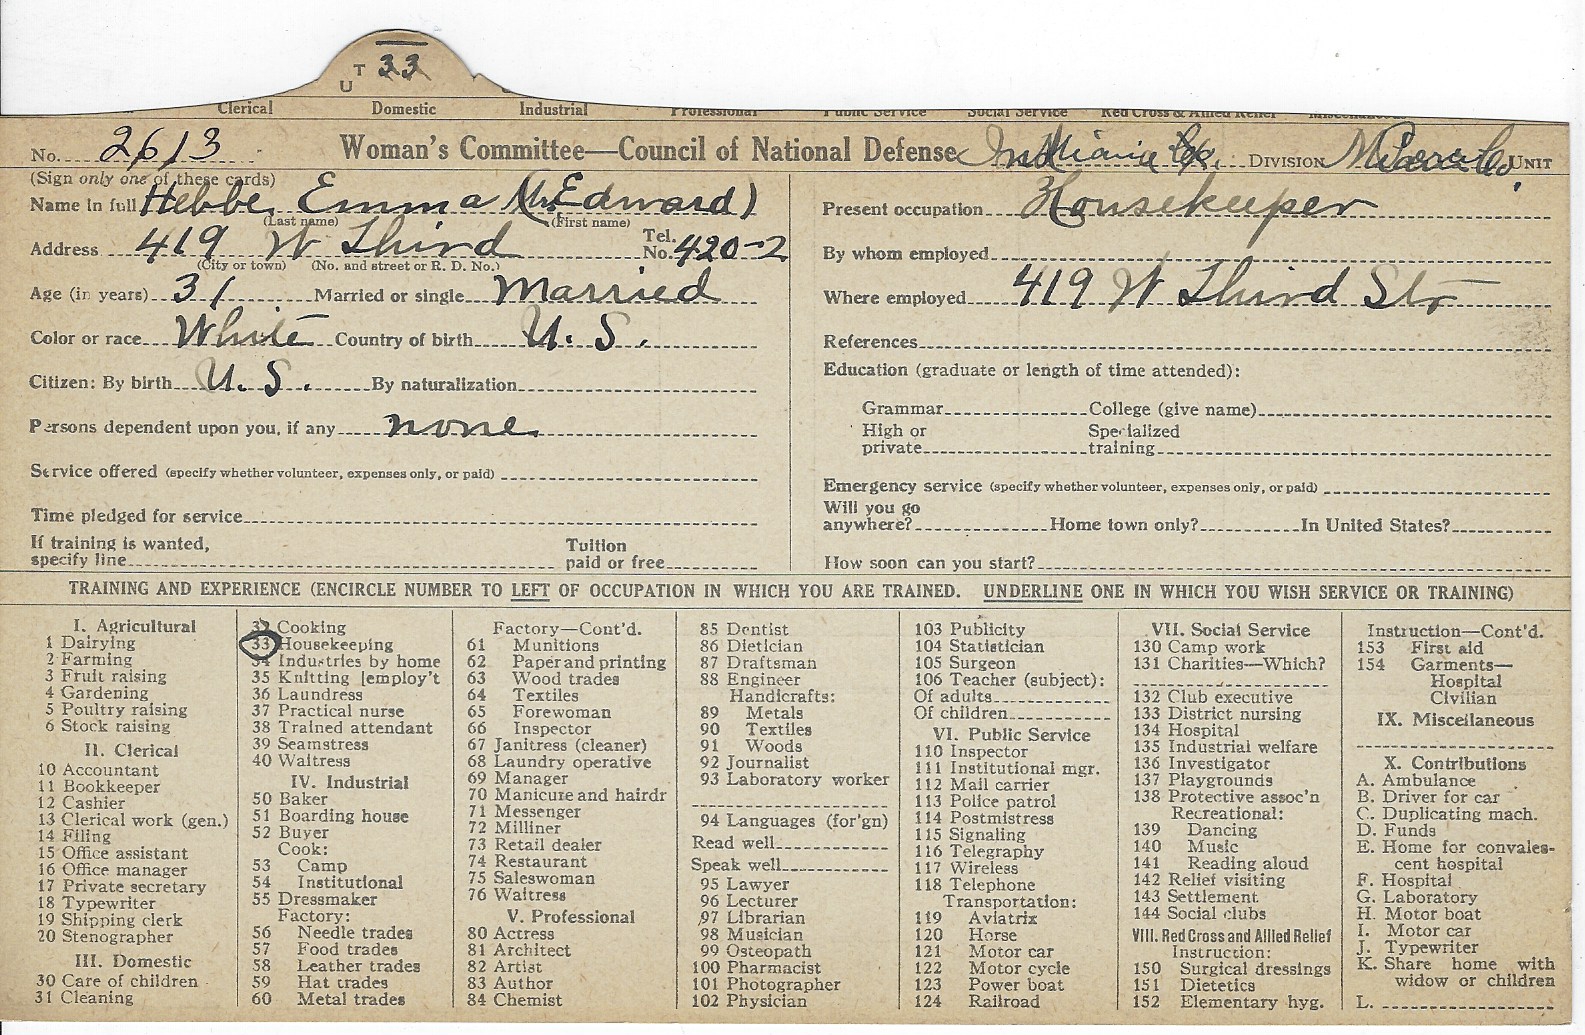 T 33
U
Clerical Domestic Industrial Professional Public Service Social Service Red Cross & Allied Relief Miscellaneous
No. 2613 Woman's Committee—Council of National Defense Indiana DIVISION UNIT
(Sign only one of these cards)
Name in full Hebbe, Emma (Mr. Edward)
(Last name) (First name)
Address 419 W Third Tel. No. 420-2
(City or town) (No. and street or R. D. No.)
Age (in years) 31 Married or single Married
Color or race White Country of birth U. S.
Citizen: By birth U. S. By naturalization
Persons dependent upon you, if any none
Service offered (specify whether volunteer, expenses only, or paid)
Time pledged for service
If training is wanted, specify line Tuition paid or free
Present occupation Housekeeper
By whom employed
Where employed 419 W Third Str
References
Education (graduate or length of time attended):
Grammar College (give name)
High or private Specialized training
Emergency service (specify whether volunteer, expenses only, or paid)
Will you go anywhere? Home town only? In United States?
How soon can you start?
TRAINING AND EXPERIENCE (ENCIRCLE NUMBER TO LEFT OF OCCUPATION IN WHICH YOU ARE TRAINED. UNDERLINE ONE IN WHICH YOU WISH SERVICE OR TRAINING)
I. Agricultural
1 Dairying
2 Farming
3 Fruit raising
4 Gardening
5 Poultry raising
6 Stock raising
II. Clerical
10 Accountant
11 Bookkeeper
12 Cashier
13 Clerical work (gen.)
14 Filing
15 Office assistant
16 Office manager
17 Private secretary
18 Typewriter
19 Shipping clerk
20 Stenographer
III. Domestic
30 Care of children
31 Cleaning
32 Cooking
33 Housekeeping
34 Industries by home
35 Knitting [employ't
36 Laundress
37 Practical nurse
38 Trained attendant
39 Seamstress
40 Waitress
IV. Industrial
50 Baker
51 Boarding house
52 Buyer
Cook:
53 Camp
54 Institutional
55 Dressmaker
Factory:
56 Needle trades
57 Food trades
58 Leather trades
59 Hat trades
60 Metal trades
Factory—Cont'd.
61 Munitions
62 Paper and printing
63 Wood trades
64 Textiles
65 Forewoman
66 Inspector
67 Janitress (cleaner)
68 Laundry operative
69 Manager
70 Manicure and hairdr
71 Messenger
72 Milliner
73 Retail dealer
74 Restaurant
75 Saleswoman
76 Waitress
V. Professional
80 Actress
81 Architect
82 Artist
83 Author
84 Chemist
85 Dentist
86 Dietician
87 Draftsman
88 Engineer
Handicrafts:
89 Metals
90 Textiles
91 Woods
92 Journalist
93 Laboratory worker
94 Languages (for'gn)
Read well
Speak well
95 Lawyer
96 Lecturer
97 Librarian
98 Musician
99 Osteopath
100 Pharmacist
101 Photographer
102 Physician
103 Publicity
104 Statistician
105 Surgeon
106 Teacher (subject):
Of adults
Of children
VI. Public Service
110 Inspector
111 Institutional mgr.
112 Mail carrier
113 Police patrol
114 Postmistress
115 Signaling
116 Telegraphy
117 Wireless
118 Telephone
Transportation:
119 Aviatrix
120 Horse
121 Motor car
122 Motor cycle
123 Power boat
124 Railroad
VII. Social Service
130 Camp work
131 Charities—Which?
132 Club executive
133 District nursing
134 Hospital
135 Industrial welfare
136 Investigator
137 Playgrounds
138 Protective assoc'n
Recreational:
139 Dancing
140 Music
141 Reading aloud
142 Relief visiting
143 Settlement
144 Social clubs
VIII. Red Cross and Allied Relief
Instruction:
150 Surgical dressings
151 Dietetics
152 Elementary hyg.
Instruction—Cont'd.
153 First aid
154 Garments—
Hospital
Civilian
IX. Miscellaneous
X. Contributions
A. Ambulance
B. Driver for car
C. Duplicating mach.
D. Funds
E. Home for convales-
cent hospital
F. Hospital
G. Laboratory
H. Motor boat
I. Motor car
J. Typewriter
K. Share home with
widow or children
L.